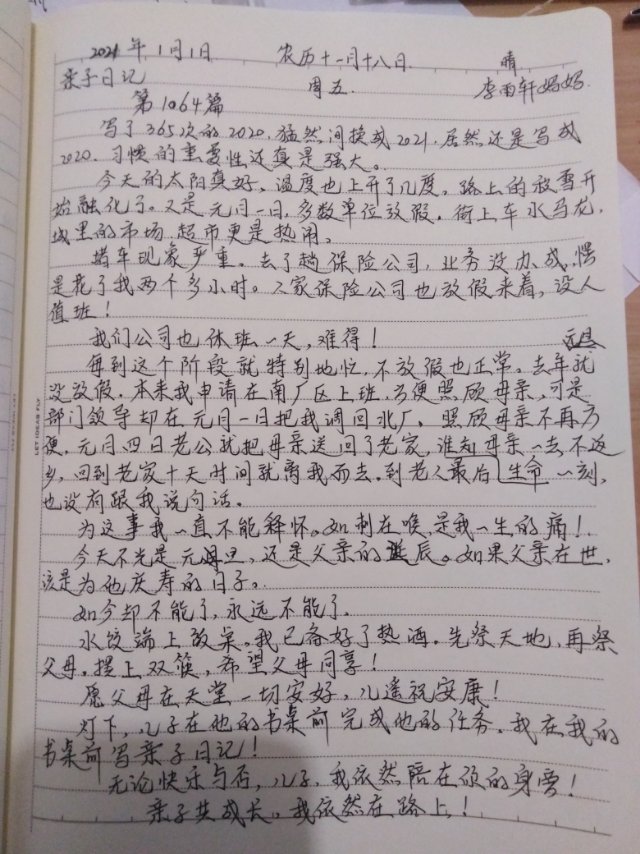 2021年1月1日 农历十一月十八日 晴
亲子日记 周五 李雨轩妈妈
第1064篇
写了365次的2020,猛然间换成2021,居然还是写成
2020.习惯的重要性还真是强大。
今天的太阳真好,温度也上升了几度,路上的积雪开
始融化了。又是元月一日,多数单位放假。街上车水马龙,
城里的市场,超市更是热闹。
堵车现象严重。去了趟保险公司,业务没办成,愣
是花了我两个多小时。人家保险公司也放假来着,没人
值班!
我们公司也休班一天,难得!
元旦
每到这个阶段就特别地忙,不放假也正常。去年就
没放假。本来我申请在南厂区上班,方便照顾母亲,可是
部门领导却在元月一日把我调回北厂,照顾母亲不再方
便,元月四日老公就把母亲送回了老家,谁知母亲一去不返
乡,回到老家十天时间就离我而去。到老人最后生命一刻,
也没有跟我说句话。
为这事我一直不能释怀。如刺在喉,是我一生的痛!
今天不光是元旦,还是父亲的诞辰。如果父亲在世,
该是为他庆寿的日子。
如今却不能了,永远不能了.
水饺端上饭桌,我已备好了热酒。先祭天地,再祭
父母。摆上双筷,希望父母同享!
愿父母在天堂一切安好,儿遥祝安康!
灯下,儿子在他的书桌前完成他的任务。我在我的
书桌前写亲子日记!
无论快乐与否,儿子,我依然陪在你的身旁!
亲子共成长。我依然在路上!
LET IDEAS FLY